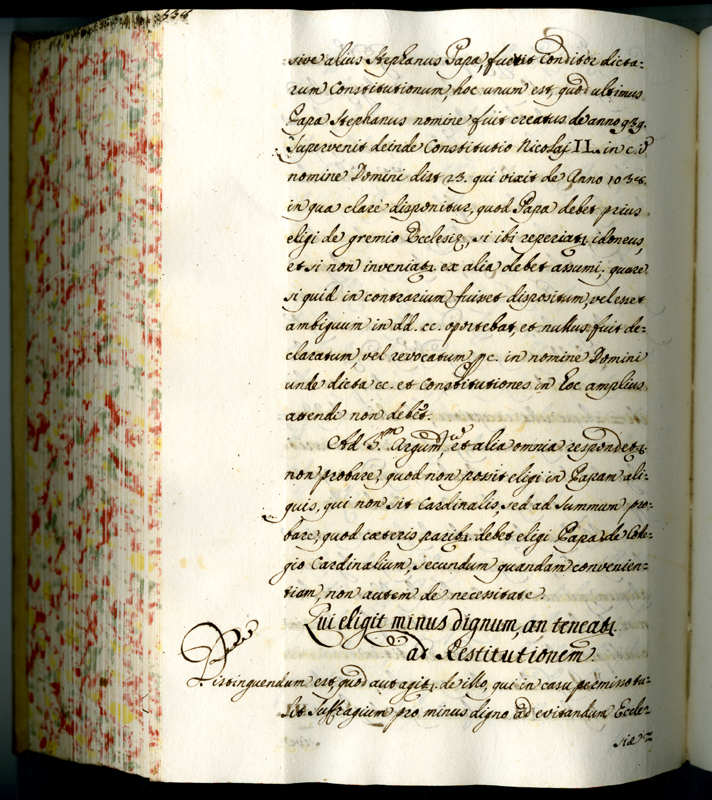 338
sive alius Stephanus Papa, fuerit Conditor dicta=
rum Constitutionum, hoc unum est, quod ultimus
Papa Stephanus nomine fuit creatus de anno 939.
Supervenit deinde Constitutio Nicolaj II. in c. i
nomine Domini dist 23. qui vixit de Anno 1038.
in qua clarè disponitur, quod Papa debet prius
eligi de gremio Ecclesię, si ibi reperiat. idoneus,
et si non inveniat. ex alia debet assumi; quare
si quid in contrarium fuisset dispositum, vel esset
ambiguum in dd. cc. oportebat, et nullus fuit de=
claratum, vel revocatum pc. in nomine Domini
unde dicta cc. et Constitutiones in hoc amplius
attendi non debet.
Ad 5.m Argum, et alia omnia respondet.
non probare, quod non possit eligi in Papam ali=
quis, qui non sit Cardinalis, sed ad Summum pro=
bare, quod cæteris parib. debet eligi Papa de Colle=
gio Cardinalium, secundum quandam convenien=
tiam, non autem de necessitate.
Qui eligit minus dignum, an teneat.
ad Restitutionem
Distinguendum est, quod aut agit. de illo, qui in casu pręmisso tu=
lit Suffragium pro minus digno ad evitandum Eccle=
sie